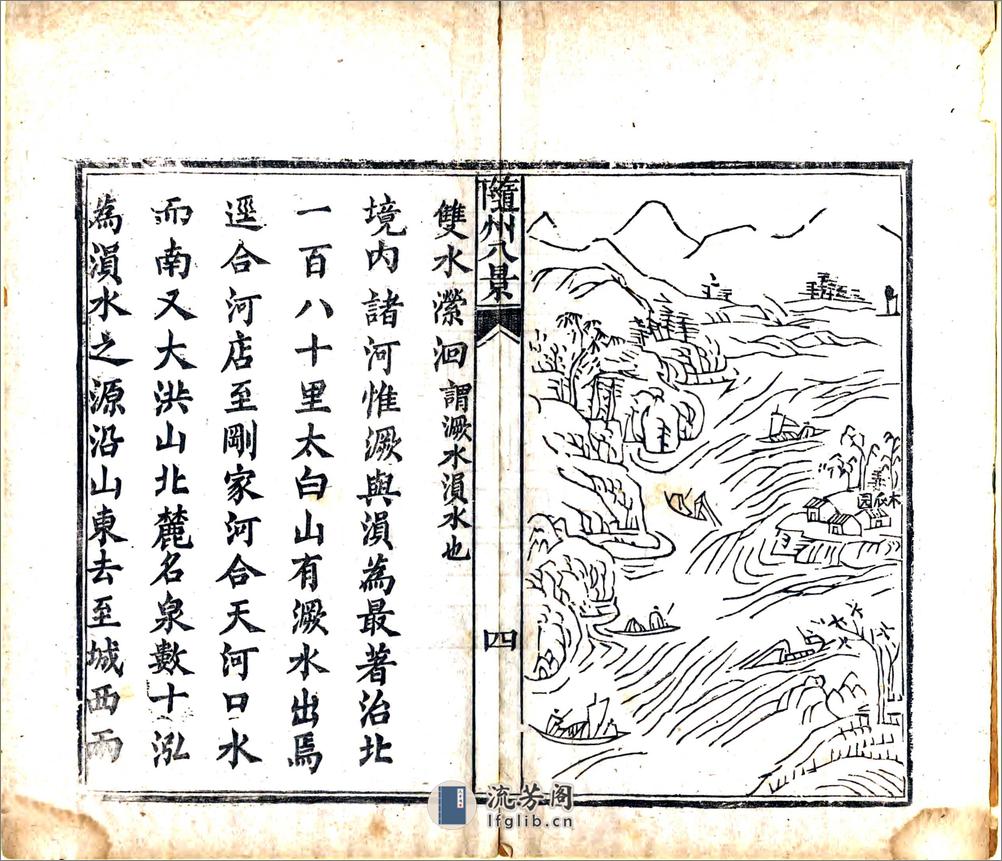 木瓜园
隨州八景
四
雙水濚洄謂㵐水溳水也
境內諸河惟㵐與溳為最著治北
一百八十里太白山有㵐水出焉
逕合河店至剛家河合天河口水
而南又大洪山北麓名泉數十泓
為溳水之源沿山東去至城西而
流芳阁
lfglib.cn